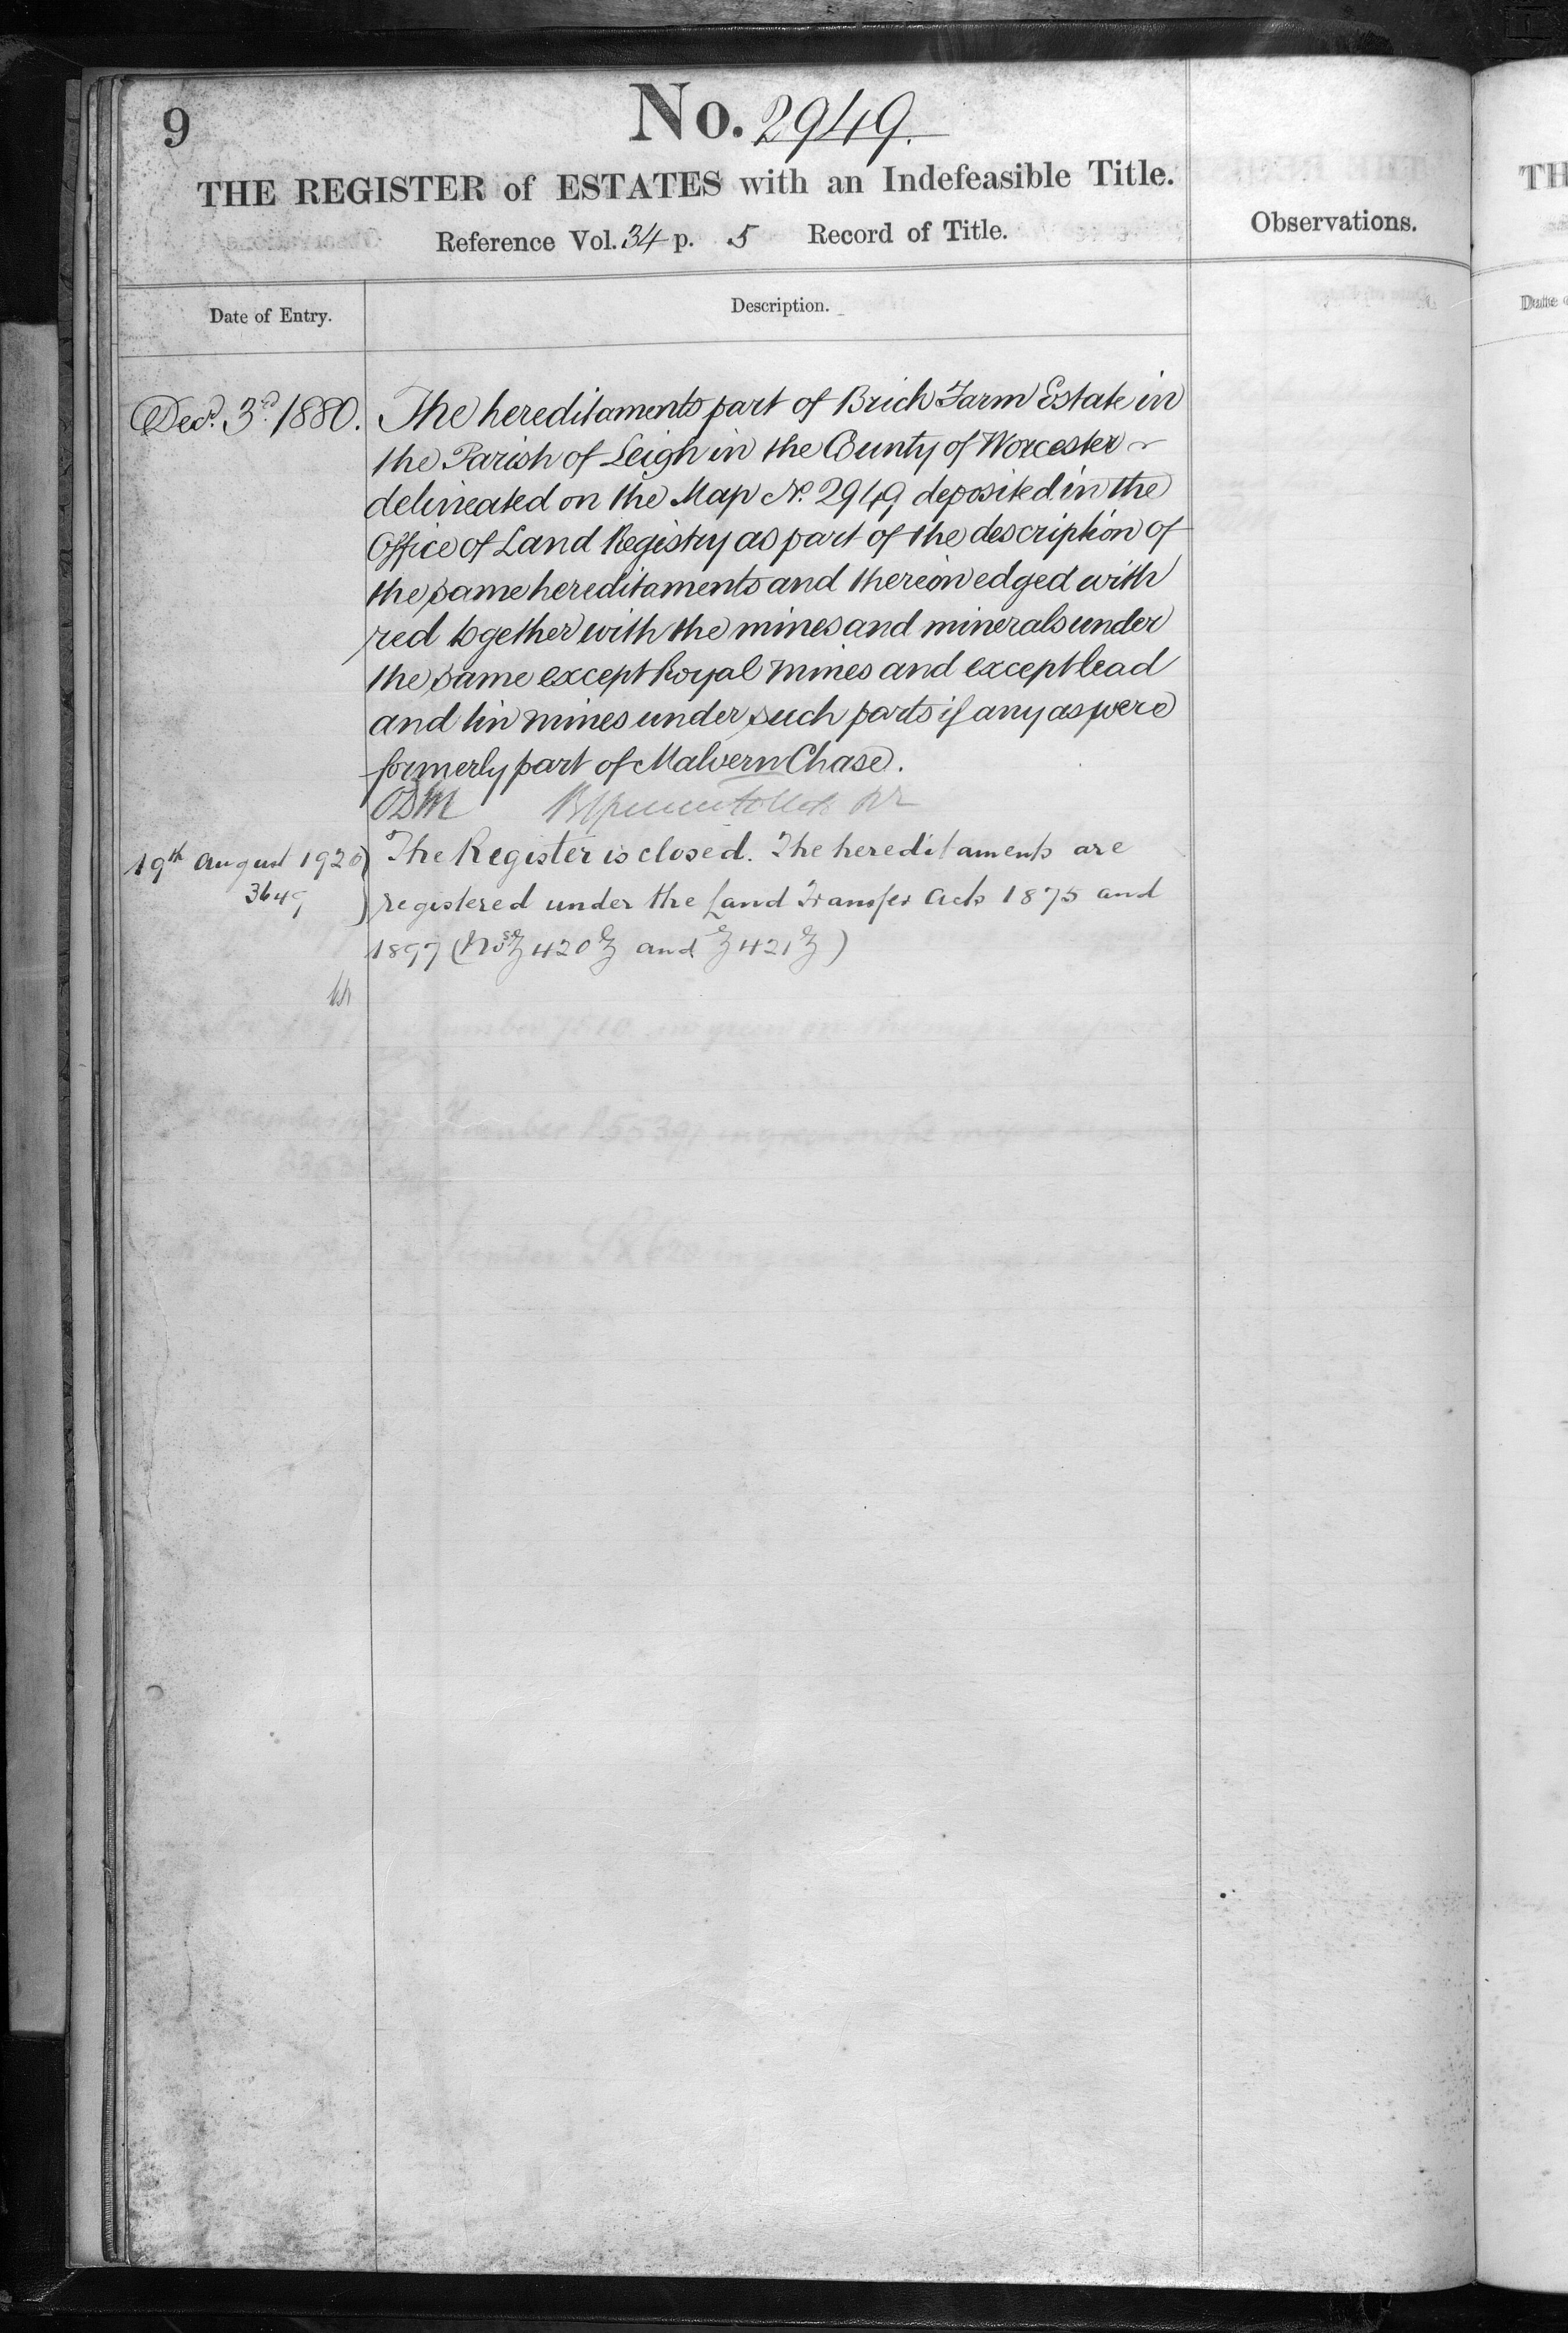 9
No. 2949.
THE REGISTER of ESTATES with an Indefeasible Title.
Reference Vol. 34 p. 5 Record of Title.
Observations.
Date of Entry.
Description.
Decr. 3rd 1880.
The hereditaments part of Brich Farm Estate in
the Parish of Leigh in the County of Worcester
delineated on the Map No. 2949 deposited in the
Office of Land Registry as part of the description of
the same hereditaments and thereon edged with
red together with the mines and minerals under
the same except Royal mines and except lead
and tin mines under such parts if any as were
formerly part of Malvern Chase.
19th August 1920
3649
The Register is closed. The hereditaments are
registered under the Land Transfer Acts 1875 and
1897 (Nos 420 and 421)
TH